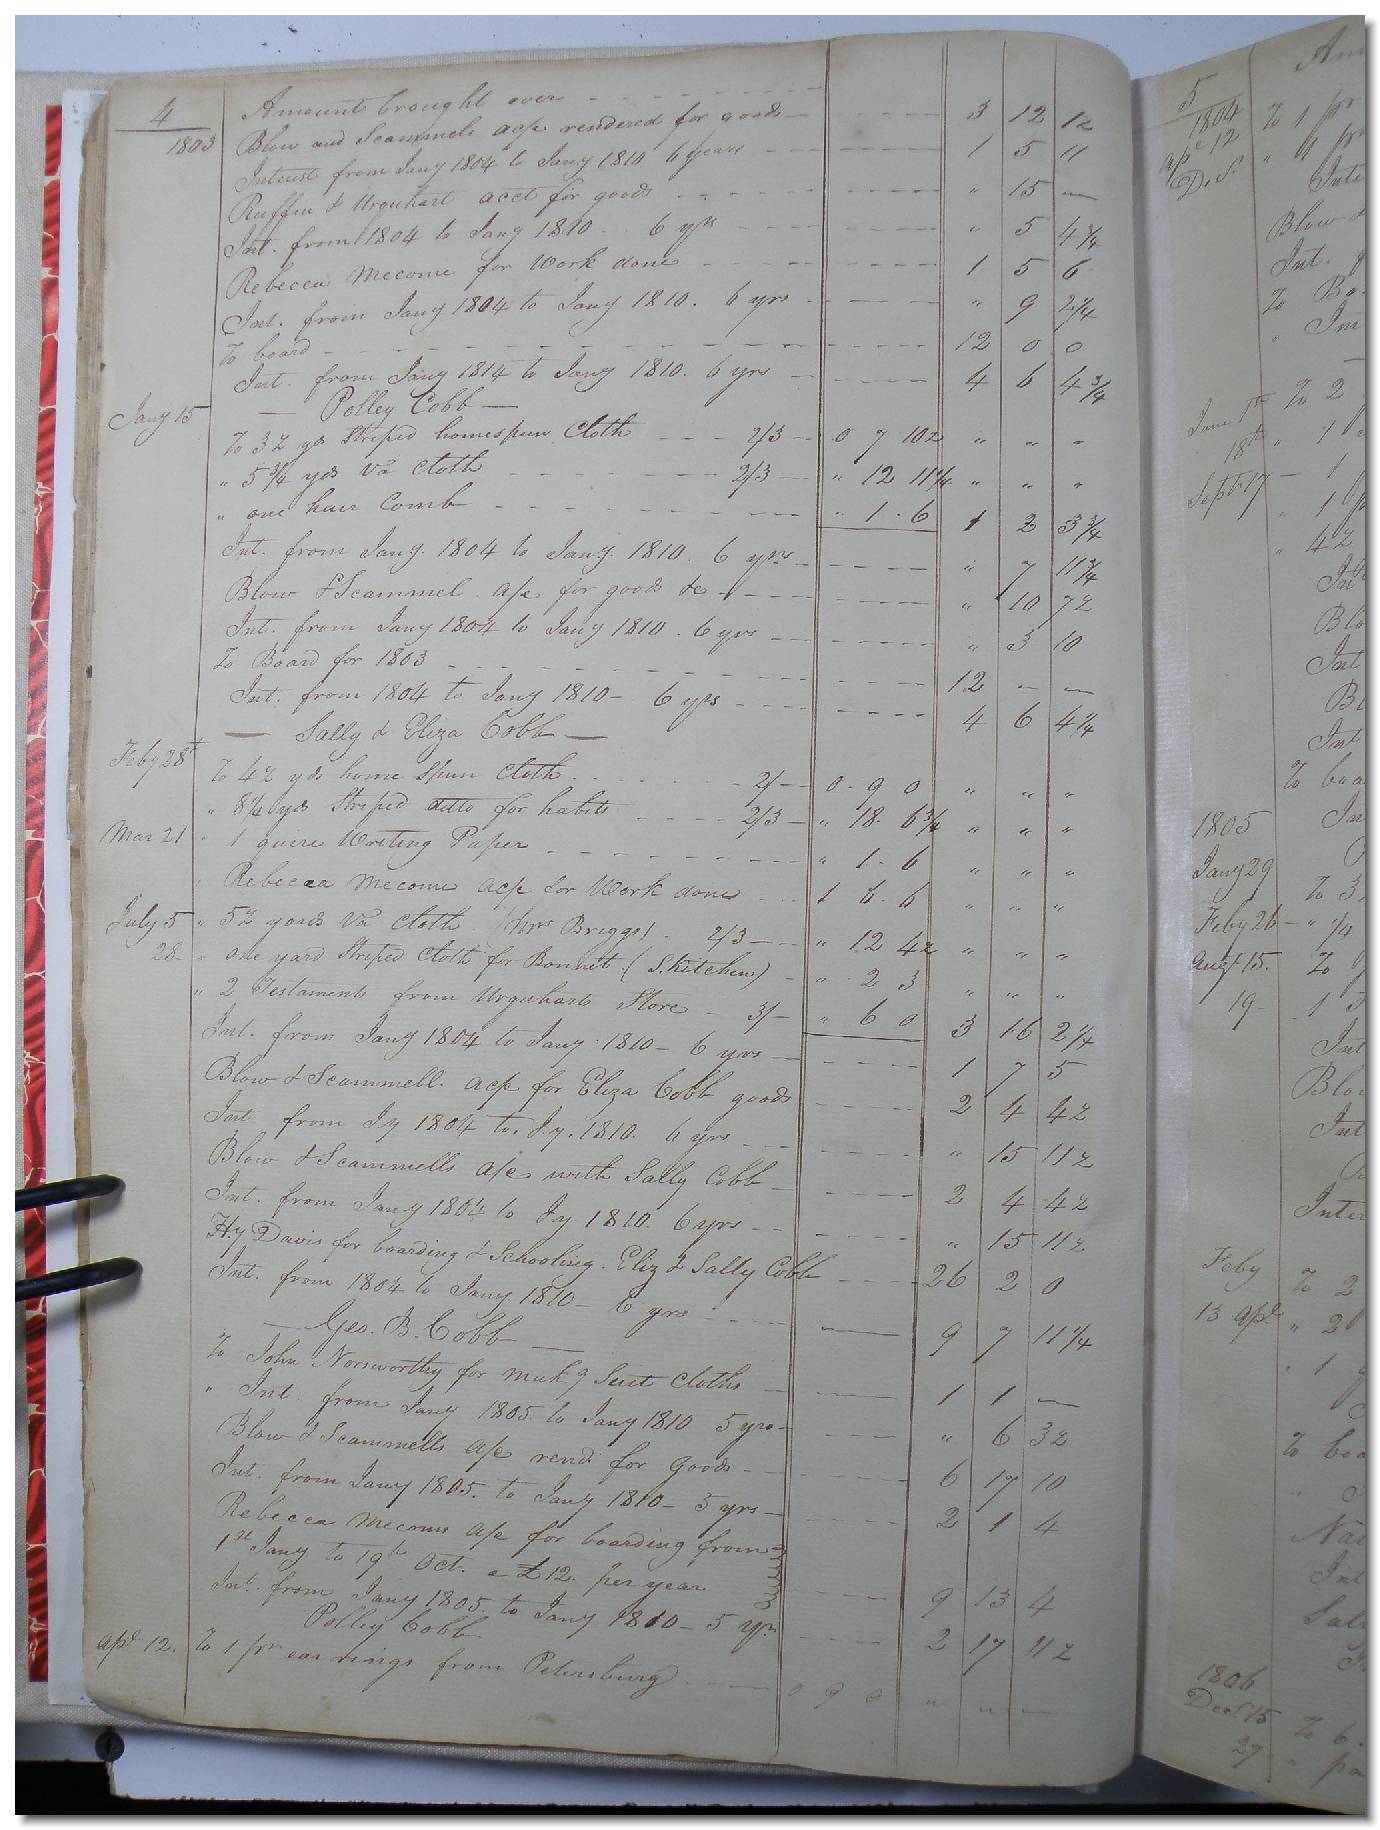 4 Amount brought over - - - - - - -
1803 Blow and Scammels acp rendered for goods - - - - - 3 12 1½
Interest from Jany 1804 to Jany 1810 6 years - - - - - 1 5 11
Ruffin & Urquhart acct for goods - - - - - " 15 —
Int. from 1804 to Jany 1810. 6 yrs - - - - - " 5 4¾
Rebecca Mecome for Work done - - - - - 1 5 6
Int. from Jany 1804 to Jany 1810. 6 yrs - - - - - " 9 2¼
To board - - - - - 12 0 0
Int. from Jany 1814 to Jany 1810. 6 yrs - - - - - 4 6 4¾
— Polley Cobb —
Jany 15 To 3½ yds Striped homespun Cloth - - - 2/3 — 0 7 10½ " " "
" 5¾ yds Va Cloth - - - - - 2/3 — " 12 11¼ " " "
" one hair Comb - - - - - " 1 . 6 1 2 3¾
Int. from Jany. 1804 to Jany. 1810. 6 yrs - - - - - " 7 11¾
Blow & Scammel a/c for goods &c - - - - - " 10 7½
Int. from Jany 1804 to Jany 1810. 6 yrs - - - - - " 3 10
To Board for 1803 - - - - - 12 — —
Int. from 1804 to Jany 1810 - 6 yrs - - - - - 4 6 4¼
— Sally & Eliza Cobb —
Feby 28t To 4½ yds home Spun Cloth - - - - - 2/- — 0 . 9 0 " " "
" 8¼ yds Striped ditto for habits - - - - 2/3 — " 18 . 6¾ " " "
Mar 21 " 1 quire Writing Paper - - - - - " 1 . 6 " " "
" Rebecca Mecome acp for Work done - - - 1 6 . 6 " " "
July 5 " 5½ yards Va Cloth (Mrs Briggs) - 2/3 — " 12 4½ " " "
28 - " one yard Striped Cloth for Bonnet (S. Kitchen) - " . 2 3 " " "
" 2 Testaments from Urquharts Store - 3/- " 6 0 3 16 2¼
Int. from Jany 1804 to Jany 1810 - 6 yrs - - - - - 1 7 5
Blow & Scammell. acp for Eliza Cobb goods - - - - 2 4 4½
Int. from Jy 1804 to. Jy. 1810. 6 yrs - - - - - " 15 11½
Blow & Scammells a/c with Sally Cobb - - - - - 2 4 4½
Int. from Jany 1804 to Jy 1810. 6 yrs - - - - - " 15 11½
Hy Davis for boarding & Schooling. Eliz & Sally Cobb - - - - 26 2 0
Int. from 1804 to Jany 1810 - 6 yrs - - - - - 9 7 11¼
— Geo. B. Cobb —
To John Norsworthy for mak.g Suit Cloths - — 1 1 —
" Int. from Jany 1805 to Jany 1810 5 yrs - - - - " 6 3½
Blow & Scammells a/c rend. for goods - - - - - 6 17 10
Int. from Jany 1805. to Jany 1810 - 5 yrs - - - - - 2 1 4
Rebecca Mecoms a/c for boarding from
1st Jany to 19th Oct. a £12. per year - - - 9 13 4
Int. from Jany 1805. to Jany 1810 - 5 yr - - - - 2 17 11½
Polley Cobb
apl 12. To 1 pr ear rings from Petersburg - - - - 0 9 0 " " "
5
1804
apl 12 To 1 pr
D. S. " 4 pr
Inte
Blow &
Int.
To Bo
" Int
June 1st To 2
18th " 1
Sept 17 — 1
" 1
" 4½
Int
Blo
Int
Bl
Int
To boa
1805 Int
Jany 29 To 3
Feby 26 — " ¼
augt 15. To
19 - 1
Int
Blow
Int
Inter
Feby To 2
13 apl " 2
" 1
To boa
Int
1806
Decr 15 To 6
27 " pa